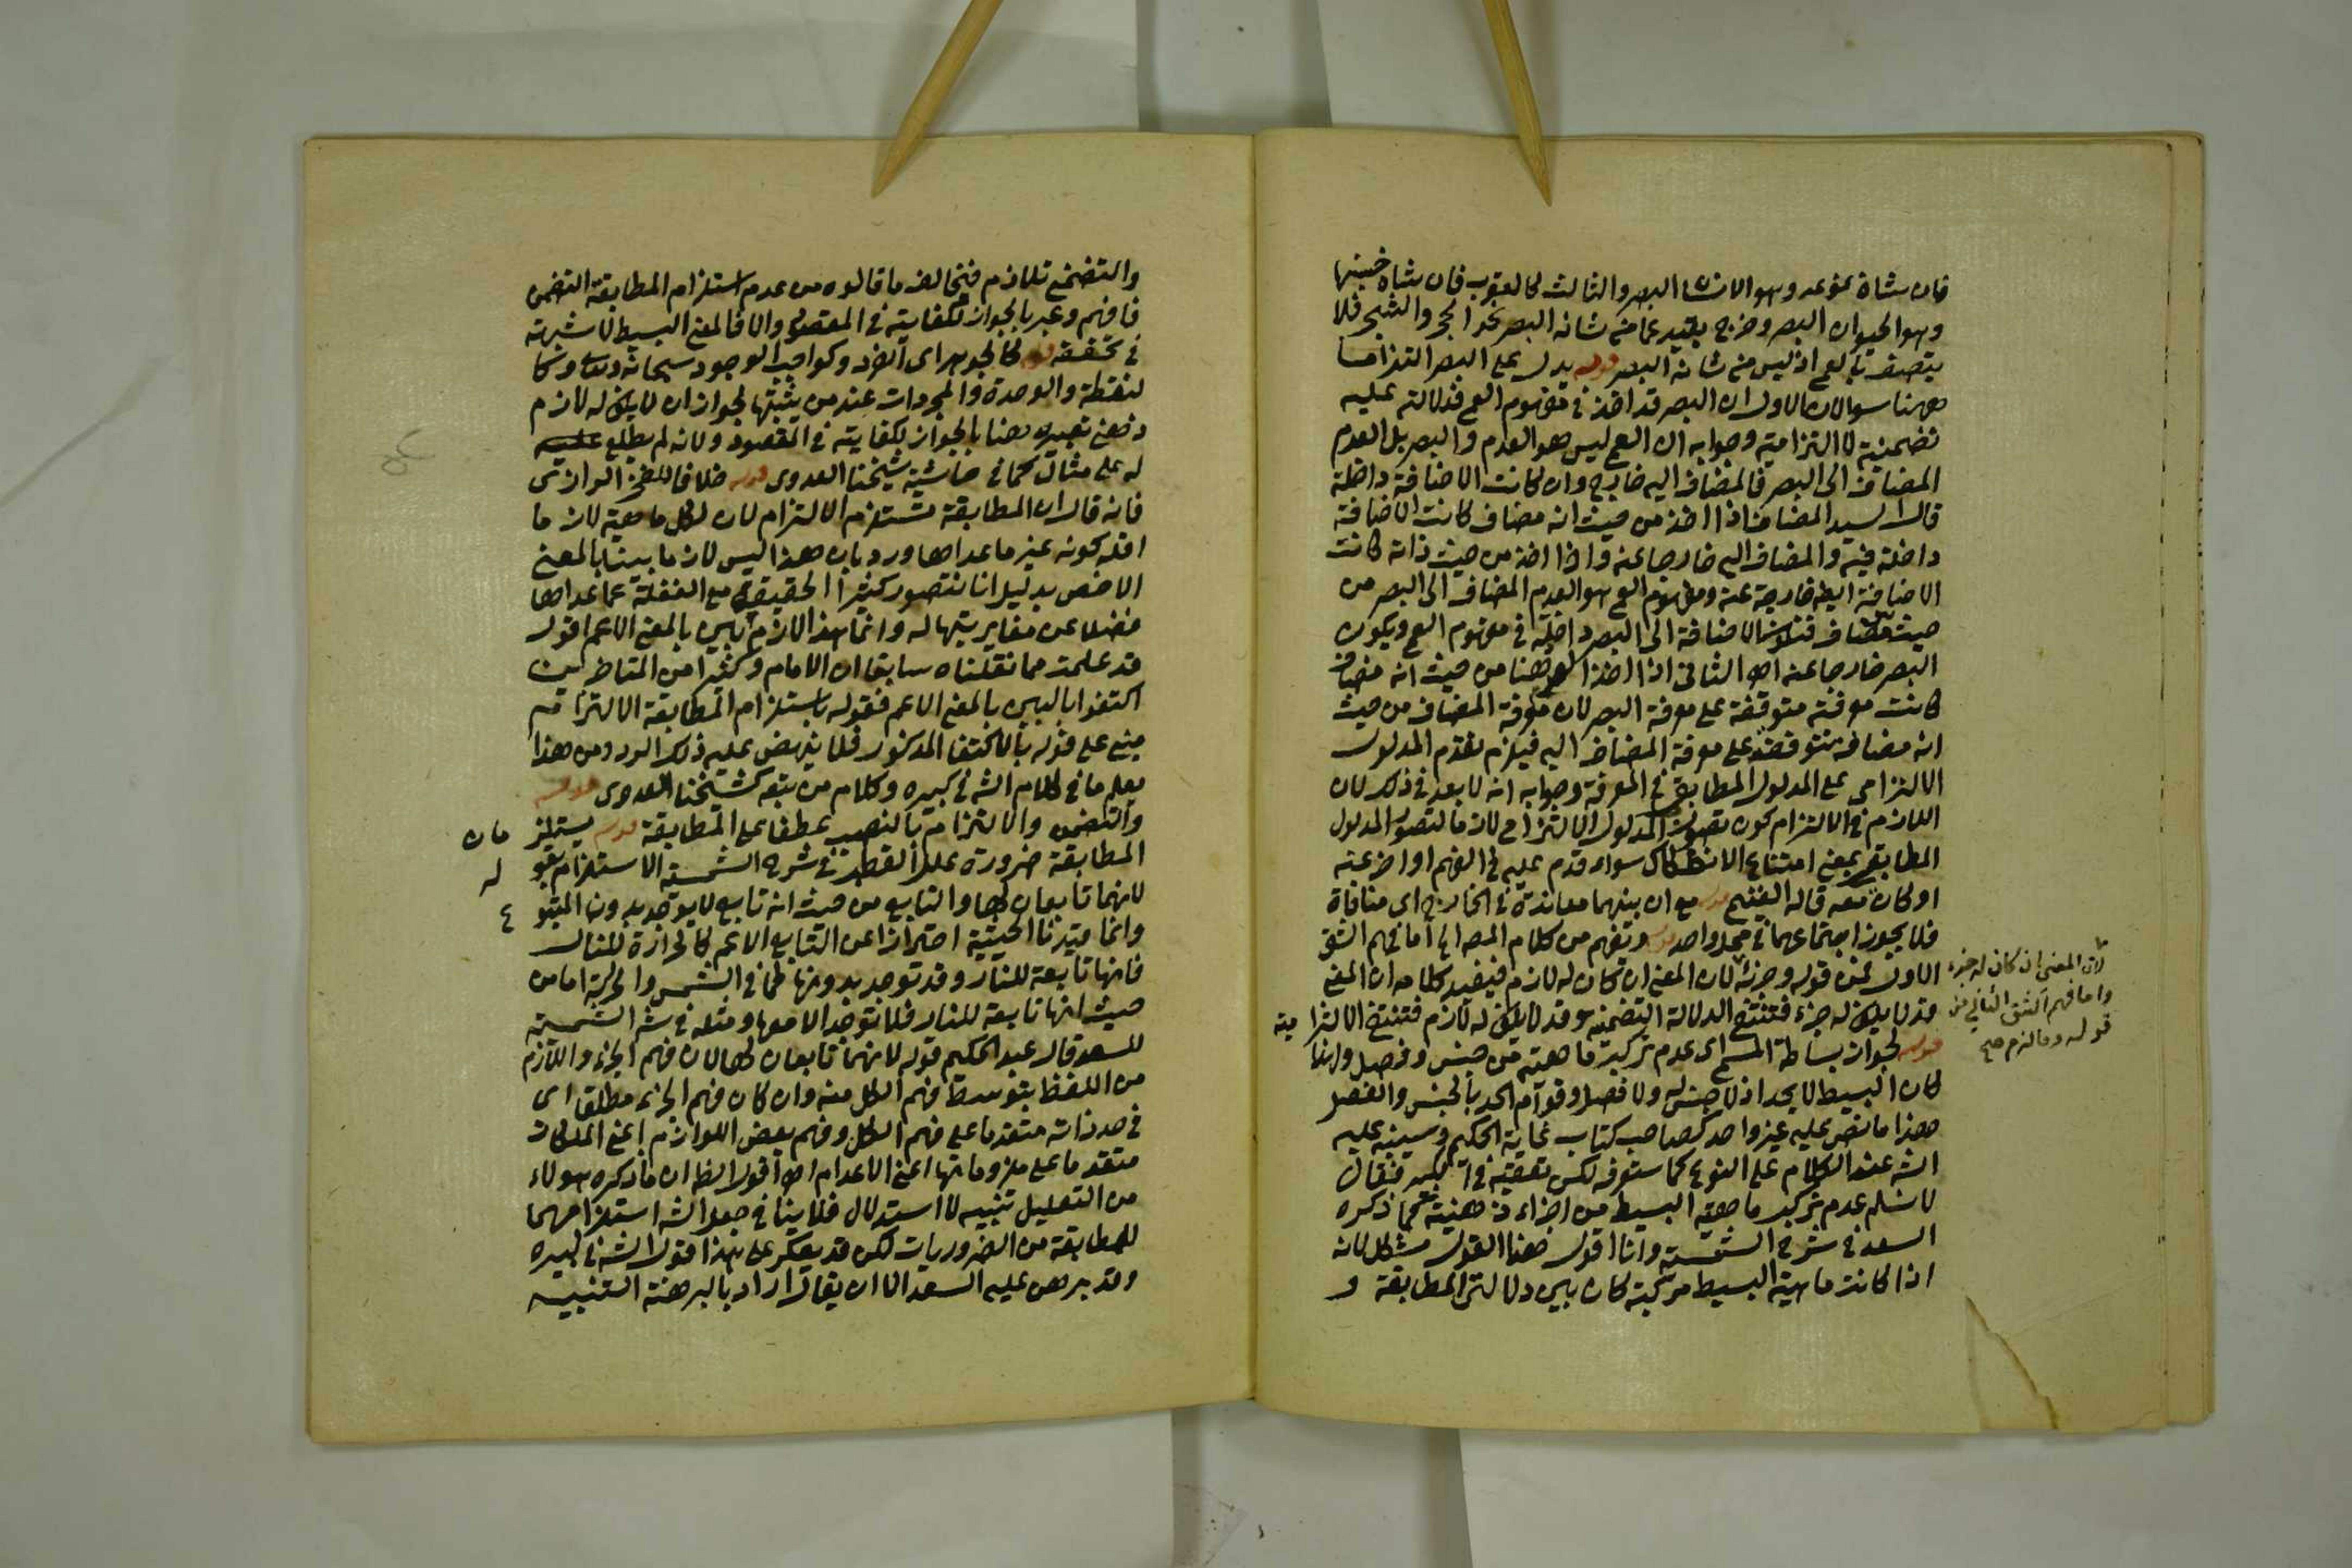 فان شاة نوعه وهو الانسان البصر والثالث كالعقرب فان شاه جنسها
وهو الحيوان البصر وخرج بقيد عما من شانه البصر نحو الحجر والشجر فلا
يتصف بالعمى اذ ليس من شانه البصر قوله يدل على البصر التزاما
ههنا سوالان الاول ان البصر قد اخذ في مفهوم العمى فدلالته عليه
تضمنية لا التزامية وجوابه ان العمى ليس هو العدم والبصر بل العدم
المضاف الى البصر فالمضاف اليه خارج وان كانت الاضافة داخلة
قال السيد المضاف اذا اخذ من حيث انه مضاف كانت الاضافة
داخلة فيه والمضاف اليه خارجا عنه واذا اخذ من حيث ذاته كانت
الاضافة ايضا خارجة عنه ومفهوم العمى هو العدم المضاف الى البصر من
حيث هو مضاف فتكون الاضافة الى البصر داخلة في مفهوم العمى ويكون
البصر خارجا عنه اهـ الثاني اذا اخذ العمى ههنا من حيث انه مضاف
كانت معرفته متوقفة على معرفة البصر لان معرفة المضاف من حيث
انه مضاف متوقفة على معرفة المضاف اليه فيلزم تقدم المدلول
الالتزامي على المدلول المطابقي في المعرفة وجوابه انه لا بعد في ذلك لان
اللازم في الالتزام كون تصور المدلول الالتزامي لازما لتصور المدلول
المطابقي بمعنى امتناع الانفكاك سواء قدم عليه في الفهم او اخر عنه
او كان معه قاله الفنج قوله مع ان بينهما معاندة في الخارج اى منافاة
فلا يجوز اجتماعهما في محل واحد قوله وتفهم من كلام المص الخ اما فهم الشق
الاول فمن قوله وجزئه لان المعنى ان كان له لازم فيفيد كلامه ان المعنى
قد لا يكون له جزء فتنتفي الدلالة التضمنية وقد لا يكون له لازم فتنتفي الالتزامية
قوله لجواز بساطة المسمى اى عدم تركيب ماهيته من جنس وفصل ولهذا
كان البسيط لا يحد اذ لا جنس له ولا فصل وقوام الحد بالجنس والفصل
هذا ما نص عليه غير واحد كصاحب كتاب غاية الحكيم وسينبه عليه
الشه عند الكلام على النوع كما ستعرفه لكن تعقبه في الكبير فقال
لا نسلم عدم تركب ماهية البسيط من اجزاء ذهنية كما ذكره
السعد في شرح الشمسية وانا اقول هنا القول مشكل لانه
اذا كانت ماهية البسيط مركبة كان بين دلالتي المطابقة و
لان المعنى ان كان له جزء
واما فهم الشق الثاني فمن
قوله وما لزم صح
والتضمن تلازم فتخالف ما قالوه من عدم استلزام المطابقة التضمن
فافهم وعبر بالجواز لكفايته في المقصود والا فالمعنى البسيط لا شبهة
في تحققه قوله كالجوهر اى الفرد وكواجب الوجود سبحانه وتعالى وكا
لنقطة والوحدة والمجردات عند من يثبتها لجواز ان لا يكون له لازم
ذهني تعبيره هنا بالجواز لكفايته في المقصود ولانه لم يطلع عليه
له على مثال كما في حاشية شيخنا العدوى قوله خلافا للفخر الرازى
فانه قال ان المطابقة تستلزم الالتزام لان لكل ماهية لازما
اقله كونه غير ما عداها ورد بان هذا ليس لازما بينا بالمعنى
الاخص بدليل انا نتصور كثيرا الحقيقة مع الغفلة عما عداها
فضلا عن مغايرتها له وانما هذا لازم بين بالمعنى الاعم اقول
قد علمت مما نقلناه سابقا ان الامام وكثيرا من المتاخرين
اكتفوا بالبين بالمعنى الاعم فقوله باستلزام المطابقة الالتزامية
مبنى على قوله بالاكتفا المذكور فلا ينهض عليه ذلك الرد ومن هذا
يعلم ما في كلام الشه في كبيره وكلام من تبعه كشيخنا العدوى قوله
والتضمن والالتزام بالنصب عطفا على المطابقة قوله يستلزمان
المطابقة ضرورة علل القطب في شرح الشمسية الاستلزام بقوله
لانهما تابعان لها والتابع من حيث انه تابع لا يوجد بدون المتبوع
وانما قيدنا الحيثية احترازا عن التابع الاعم كالحرارة للنار
فانها تابعة للنار وقد توجد بدونها كما في الشمس والحركة اما من
حيث انها تابعة للنار فلا توجد الا معها ومثله في شه الشمسية
للسعد قال عبد الحكيم قوله لانهما تابعان لها لان فهم الجزء واللازم
من اللفظ بتوسط فهم الكل منه وان كان فهم الجزء مطلقا اى
في حد ذاته متقدما على فهم الكل وفهم بعض اللوازم اعنى الملكات
متقدما على ملزوماتها اعنى الاعدام اهـ اقول الظ ان ما ذكره هولاء
من التعليل تنبيه لا استدلال فلا ينافي جعل الشه استلزامهما
للمطابقة من الضروريات لكن قد يعكر على هذا قول الشه في كبيره
وقد برهن عليه السعد الا ان يقال اراد بالبرهنة التنبيه